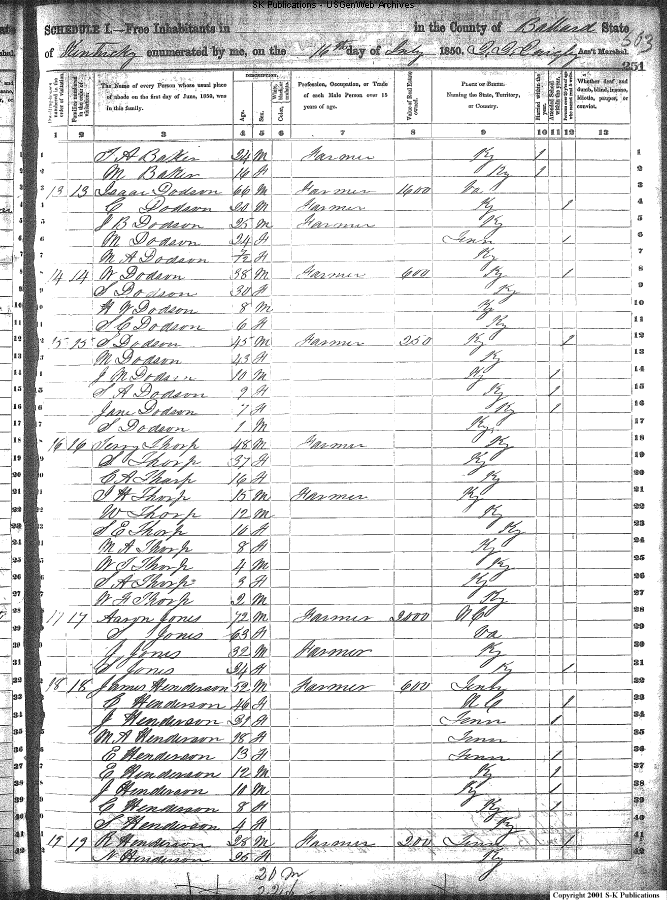 S-K Publications - USGenWeb Archives
SCHEDULE I.—Free Inhabitants in in the County of Ballard State
of Kentucky enumerated by me, on the 16th day of July 1850. Ass't Marshal.
251
The Name of every Person whose usual place of abode on the first day of June, 1850, was in this family.
DESCRIPTION.
Age. Sex.
Profession, Occupation, or Trade of each Male Person over 15 years of age.
Value of Real Estate owned.
PLACE OF BIRTH. Naming the State, Territory, or Country.
Whether deaf and dumb, blind, insane, idiotic, pauper, or convict.
1 2 3 4 5 6 7 8 9 10 11 12 13
1 Baker 24 M Farmer Ky 1 1
2 M Baker 16 Ky 1 2
3 13 13 Isaac Dodson 66 M Farmer 1600 Va 3
4 C Dodson 20 M Farmer Ky 1 4
5 J B Dodson 25 M Farmer Ky 5
6 M Dodson 24 Tenn 1 6
7 M A Dodson Ky 7
8 14 14 W Dodson 38 M Farmer 600 Ky 1 8
9 S Dodson 30 Ky 9
10 Dodson 8 M Ky 10
11 S C Dodson 6 Ky 11
12 15 15 S Dodson 45 M Farmer 250 Ky 1 12
13 M Dodson 43 Ky 13
14 J M Dodson 10 M Ky 1 14
15 S A Dodson 9 Ky 1 15
16 Jane Dodson 7 Ky 1 16
17 S Dodson 1 M Ky 17
18 16 16 Terry Thorp 48 M Farmer Ky 18
19 S Thorp 37 Ky 19
20 Thorp 16 Ky 20
21 Thorp 15 M Farmer Ky 21
22 W Thorp 12 M Ky 22
23 S E Thorp Ky 23
24 M A Thorp 8 Ky 24
25 W T Thorp 4 M Ky 25
26 S A Thorp 3 Ky 26
27 Thorp 2 M Ky 27
28 17 17 Aaron Jones 72 M Farmer 2000 N C 28
29 S Jones 63 Va 29
30 J Jones 32 M Farmer Ky 30
31 S Jones 24 Ky 1 31
32 18 18 James Henderson 52 M Farmer 600 Tenn 32
33 C Henderson 46 N C 1 33
34 J Henderson Tenn 1 34
35 M A Henderson 18 Tenn 35
36 E Henderson 13 Tenn 1 36
37 C Henderson 12 M Ky 1 37
38 J Henderson 10 M Ky 1 38
39 C Henderson 8 Ky 1 39
40 S Henderson 4 Ky 40
41 19 19 R Henderson 28 M Farmer 200 Tenn 1 41
42 N Henderson 26 Ky 42
20 M
Copyright 2001 S-K Publications